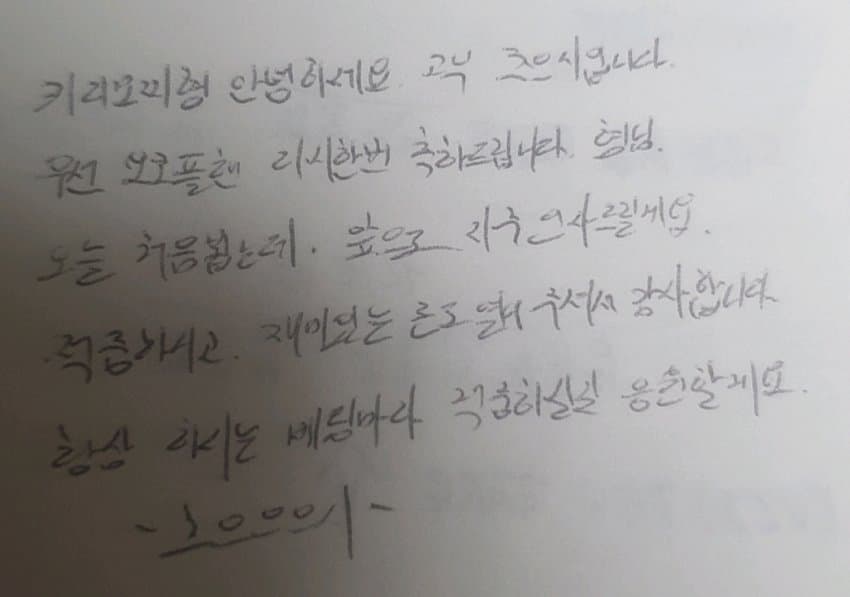 키리모찌형 안녕하세요. 고부 즈으시입니다.
우선 오프플랜 다시한번 축하드립니다. 형님.
오늘 처음뵙는데. 앞으로 자주 인사드릴게요.
적중하시고. 재미있는 론도 열어 주셔서 감사합니다.
항상 하시는 베팅마다 적중하실빌 응원할게요.